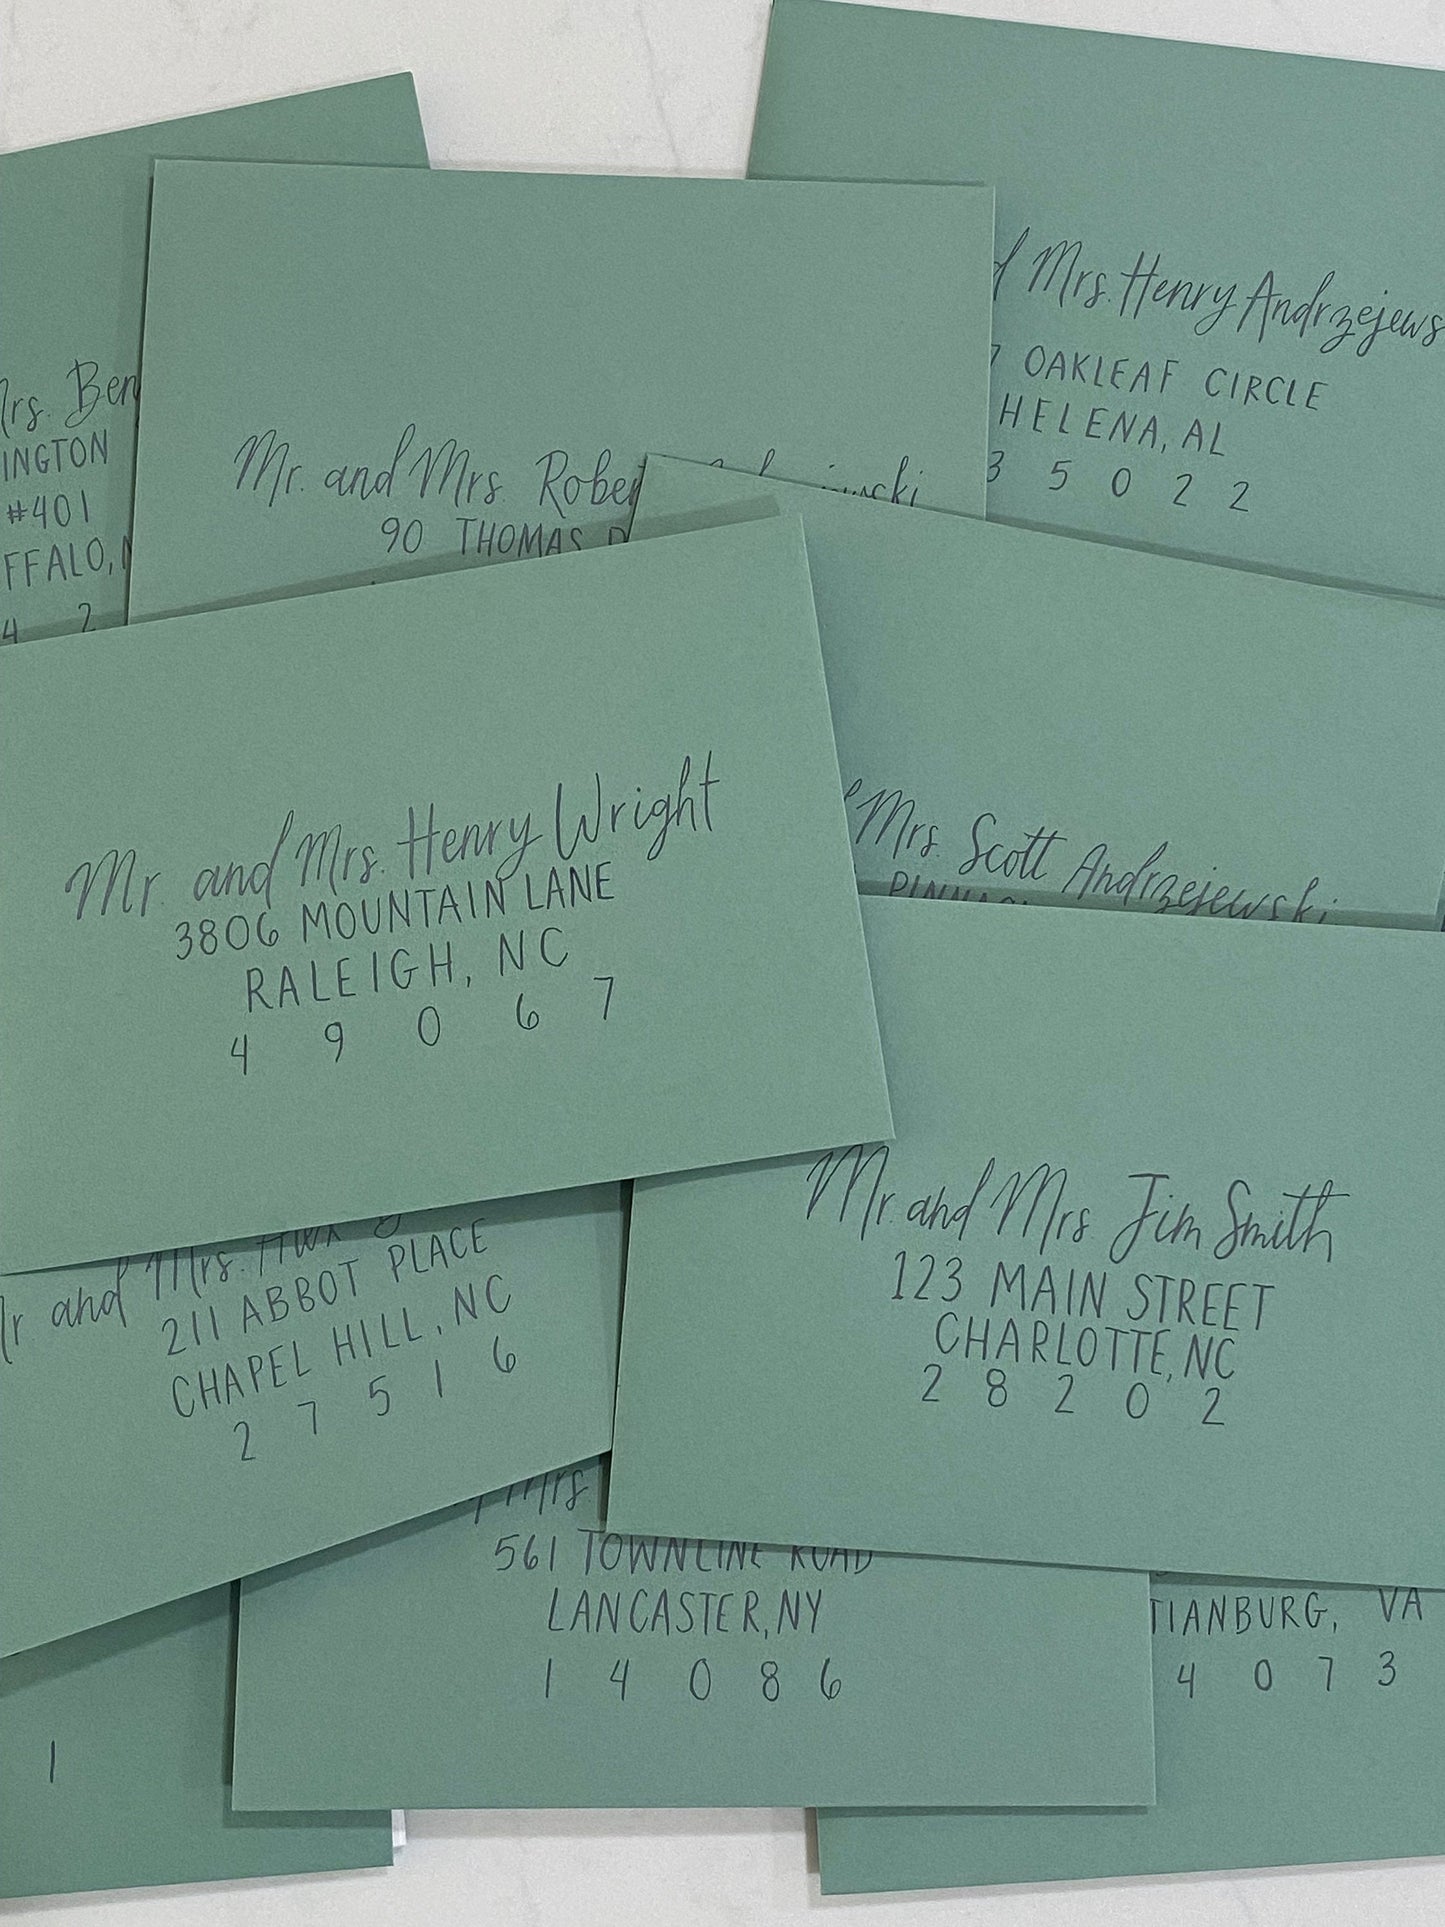 Mrs. Henry Andrzejews
OAKLEAF CIRCLE
HELENA, AL
3 5 0 2 2
rs. Ben
INGTON
#401
FFALO,
4 2
Mr. and Mrs. Rober
90 THOMAS
Mrs. Scott Andrzejewski
Mr. and Mrs. Henry Wright
3806 MOUNTAIN LANE
RALEIGH, NC
4 9 0 6 7
Mr. and Mrs. Jim Smith
123 MAIN STREET
CHARLOTTE, NC
2 8 2 0 2
r. and Mrs.
211 ABBOT PLACE
CHAPEL HILL, NC
2 7 5 1 6
Mrs.
561 TOWNLINE ROAD
LANCASTER, NY
1 4 0 8 6
TIANBURG, VA
4 0 7 3
1